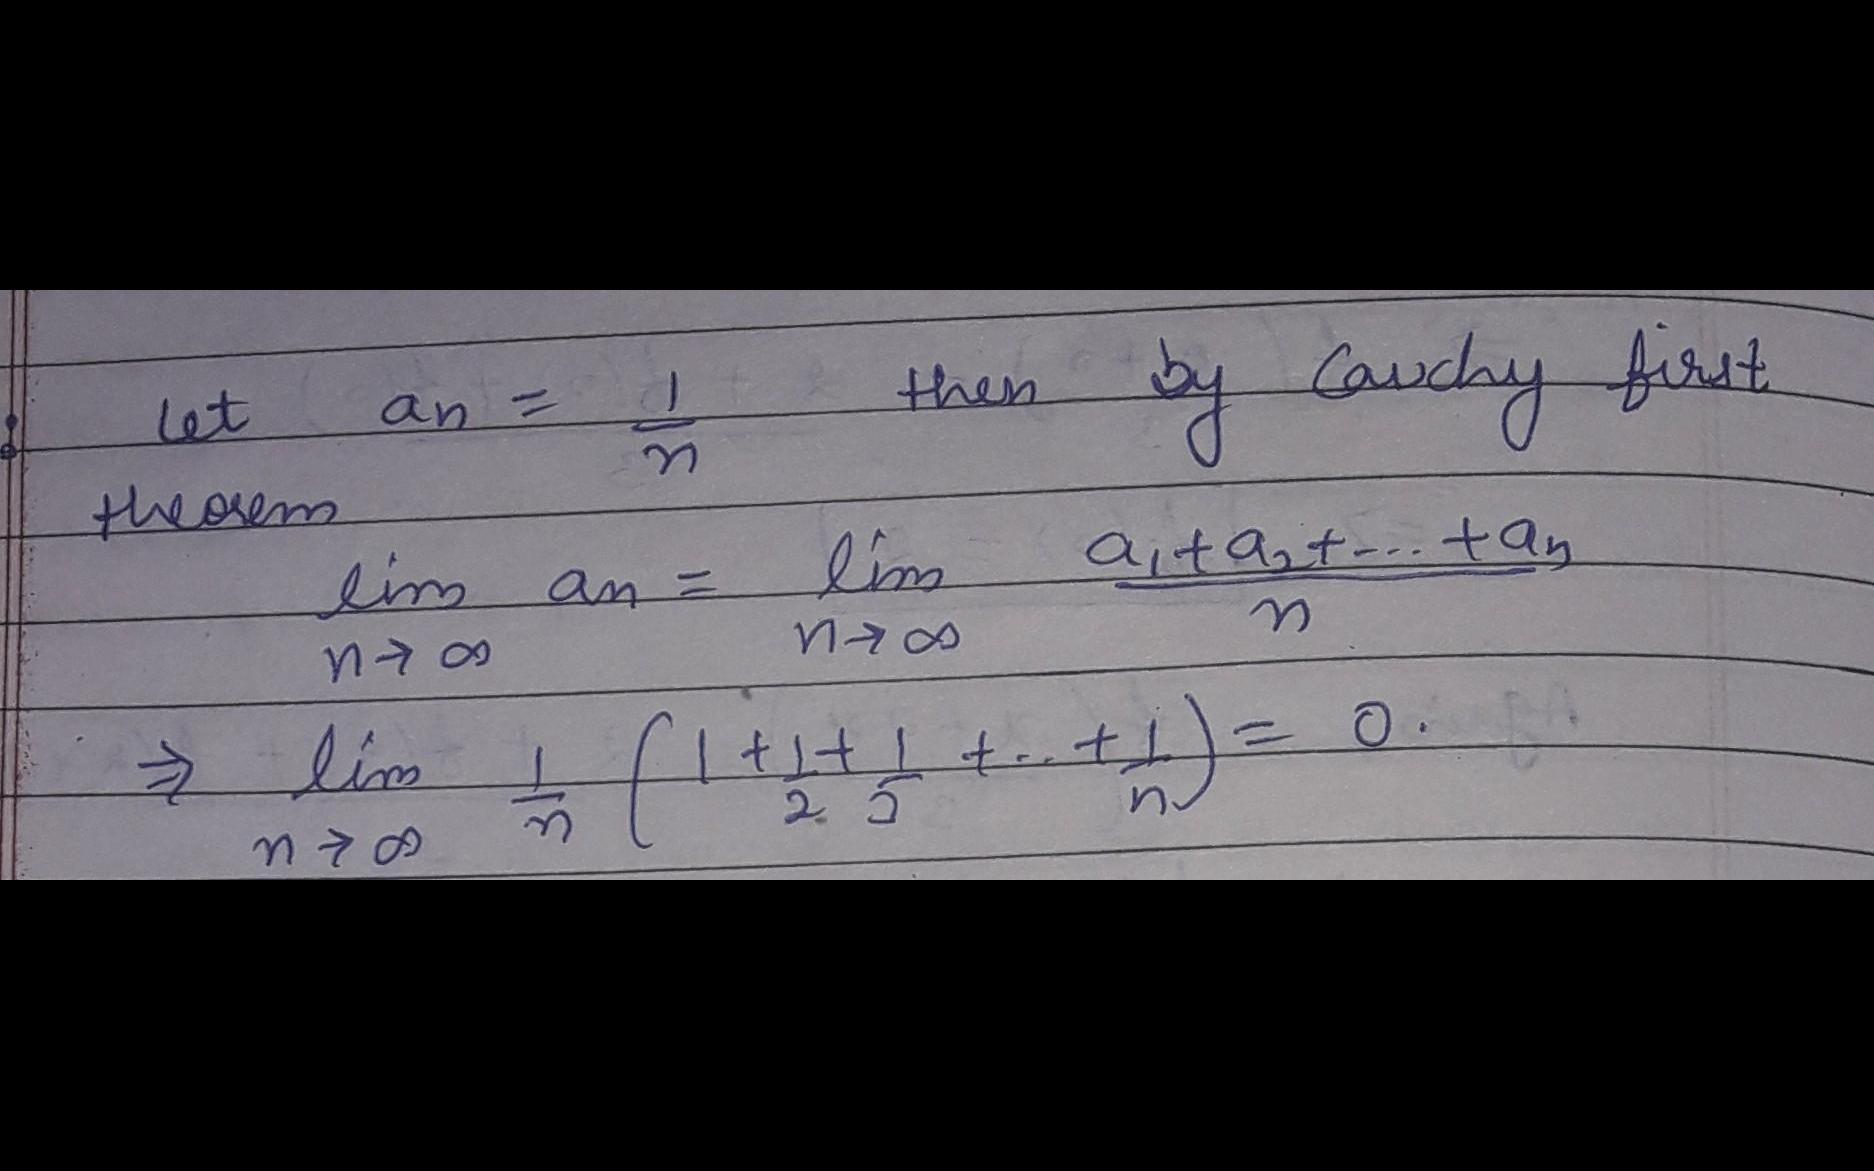 Let an = 1/n then by Cauchy first
theorem
lim n→∞ an = lim n→∞ a₁+a₂+-...+an / n
⇒ lim n→∞ 1/n (1+1/2+1/3+...+1/n) = 0.